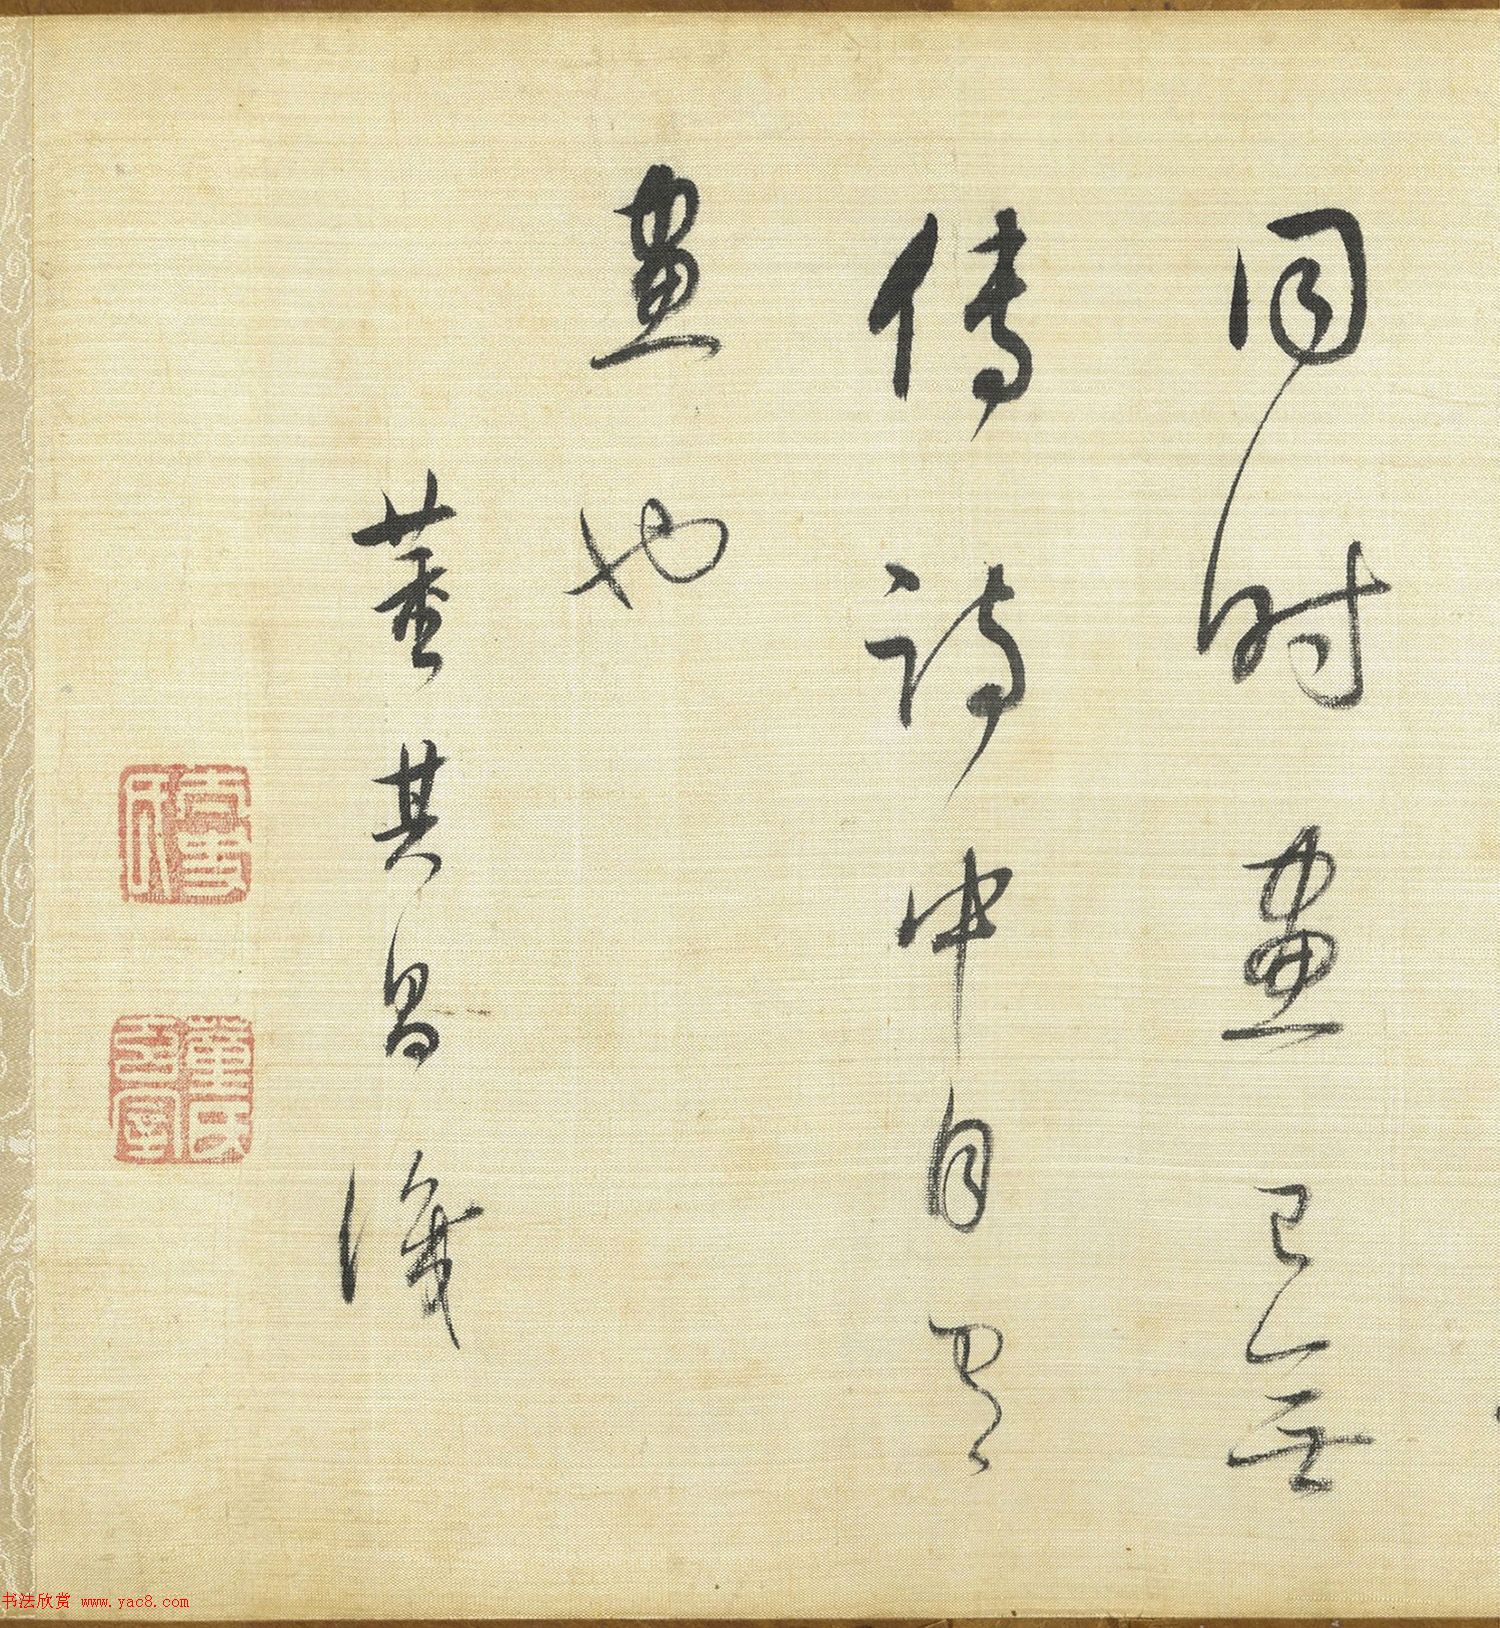 同時畫已無
傳詩中自有
畫也
董其昌識
董氏
书法欣赏 www.yac8.com